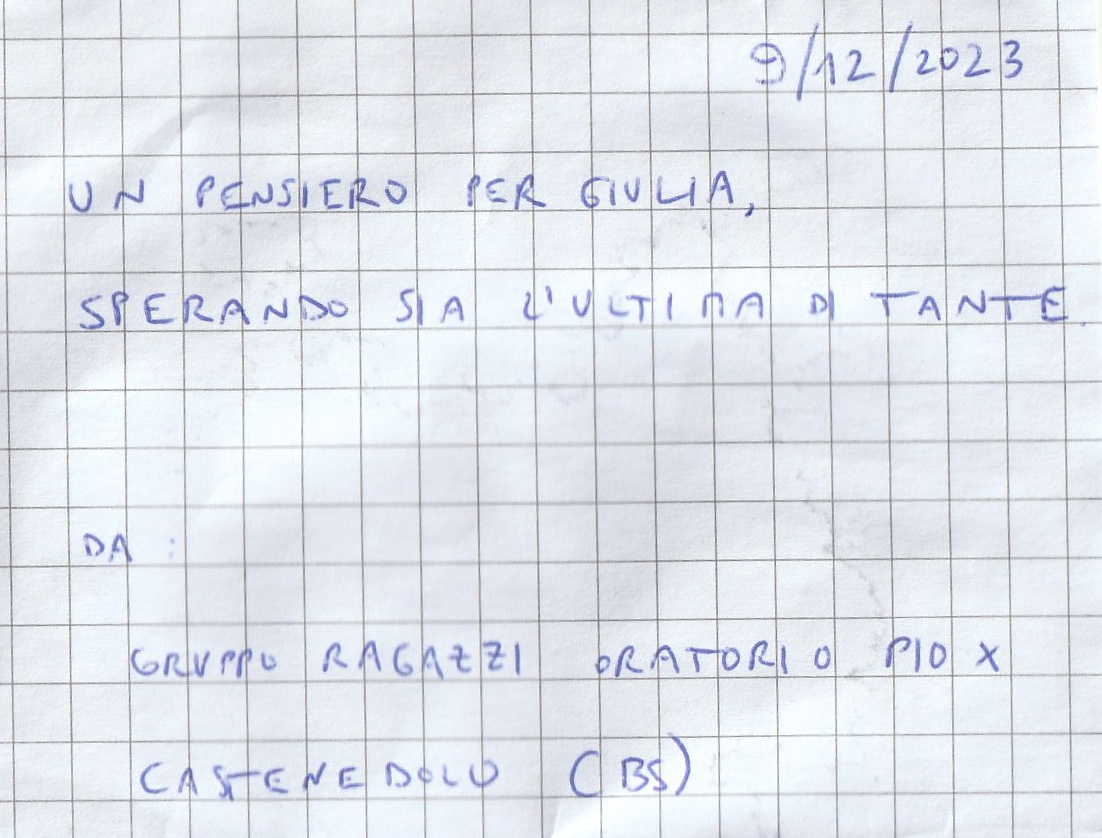 9/12/2023
UN PENSIERO PER GIULIA,
SPERANDO SIA L'ULTIMA DI TANTE.
DA :
GRUPPO RAGAZZI ORATORIO PIO X
CASTENEDOLO (BS)